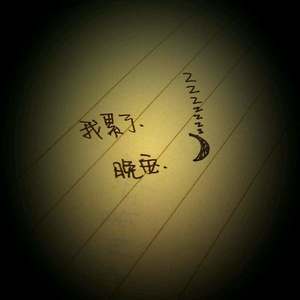 我累了.
晚安.
zzzzzzz